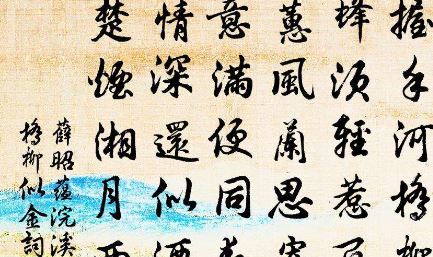 握手河橋柳
蜂須輕惹
蕙風蘭思
意滿便同
情深還似酒
楚煙湘月兩
薛昭蘊浣溪
橋柳似金詞